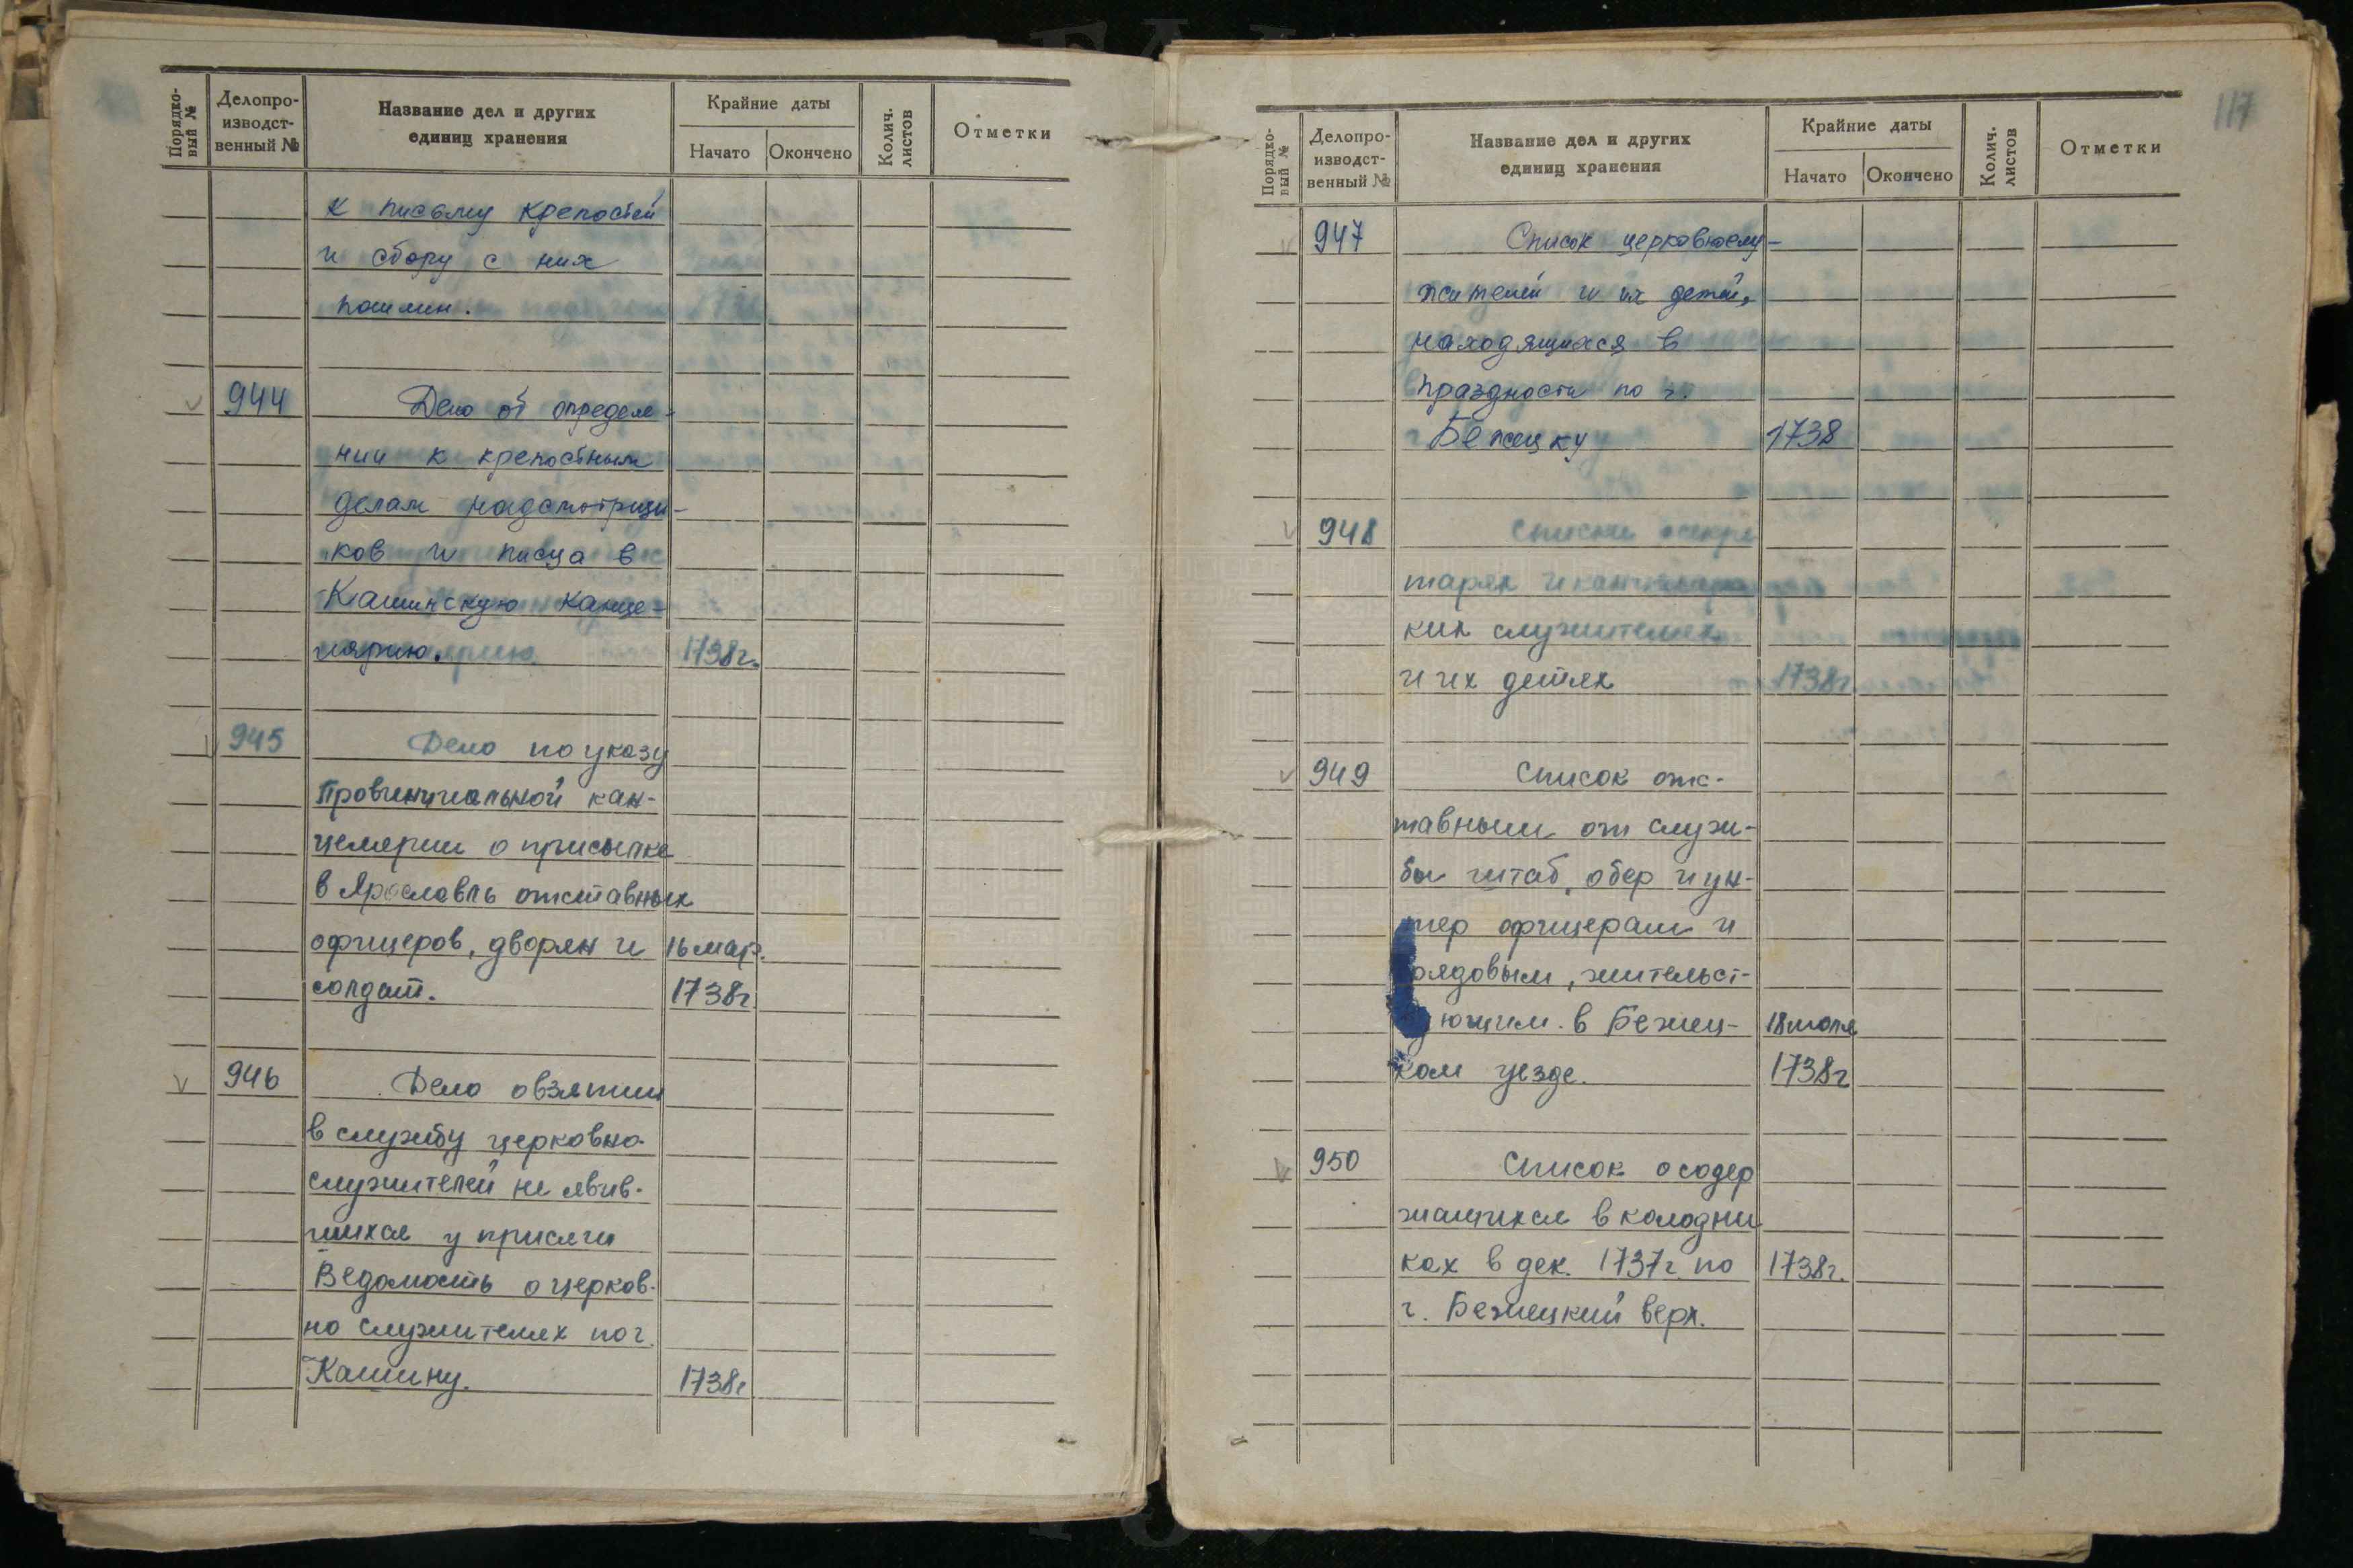 Порядко-
вый №
Делопро-
изводст-
венный №
Название дел и других
единиц хранения
Крайние даты
Начато
Окончено
Колич.
листов
Отметки
к письму крепостей
и сбору с них
пошлин.
944
Дело об определе-
нии к крепостным
делам надсмотрщи-
ков и писца в
Кашинскую канце-
лярию. 1738г.
945
Дело по указу
Провинциальной кан-
целярии о присылке
в Ярославль отставных
офицеров, дворян и 16 мар.
солдат. 1738г.
946
Дело о взятии
в службу церковно-
служителей не явив-
шихся у присяги
Ведомость о церков-
но служителях по г.
Кашину. 1738г
117
Порядко-
вый №
Делопро-
изводст-
венный №
Название дел и других
единиц хранения
Крайние даты
Начато
Окончено
Колич.
листов
Отметки
947
Список церковнослу-
жителей и их детей,
находящихся в
праздности по г.
Бежецку 1738
948
Списки о секре
тарях и канцеляр
ких служителях
и их детях 1738г
949
Список отс-
тавным от служ-
бы штаб, обер и ун-
тер офицерам и
рядовым, жительст-
ующим в Бежец-
ком уезде. 18 июля
1738г
950
Список о содер
жащихся в колодни
ках в дек. 1737г. по 1738г.
г. Бежецкий верх.